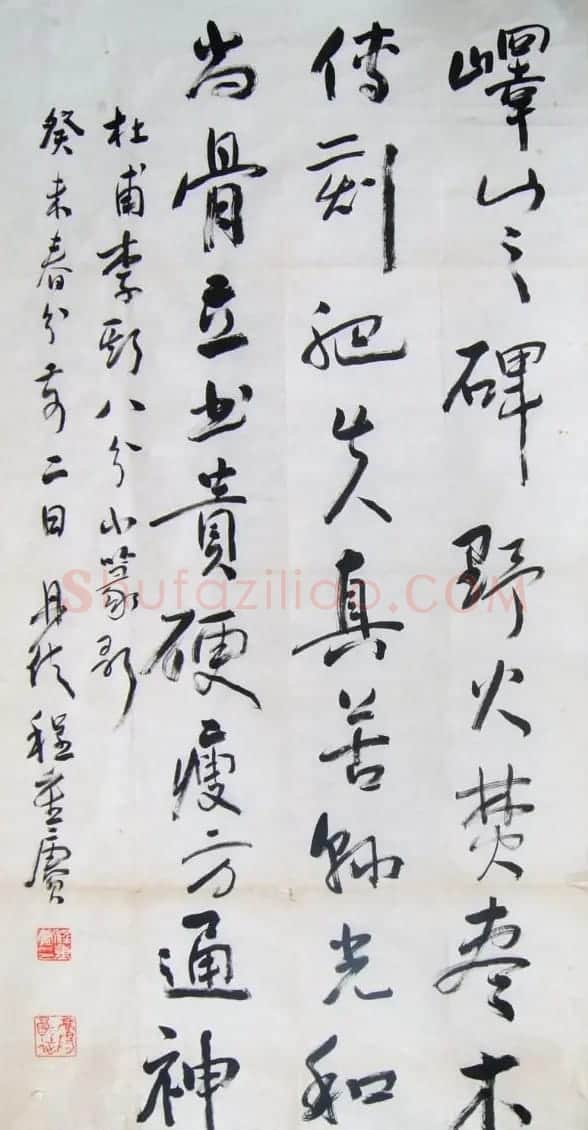 嶧山之碑野火焚枣木
傳刻肥失真苦縣光和
尚骨立书貴硬瘦方通神
杜甫李潮八分小篆歌
癸未春分前二日丹徒程重慶
Shufaziliao.COM